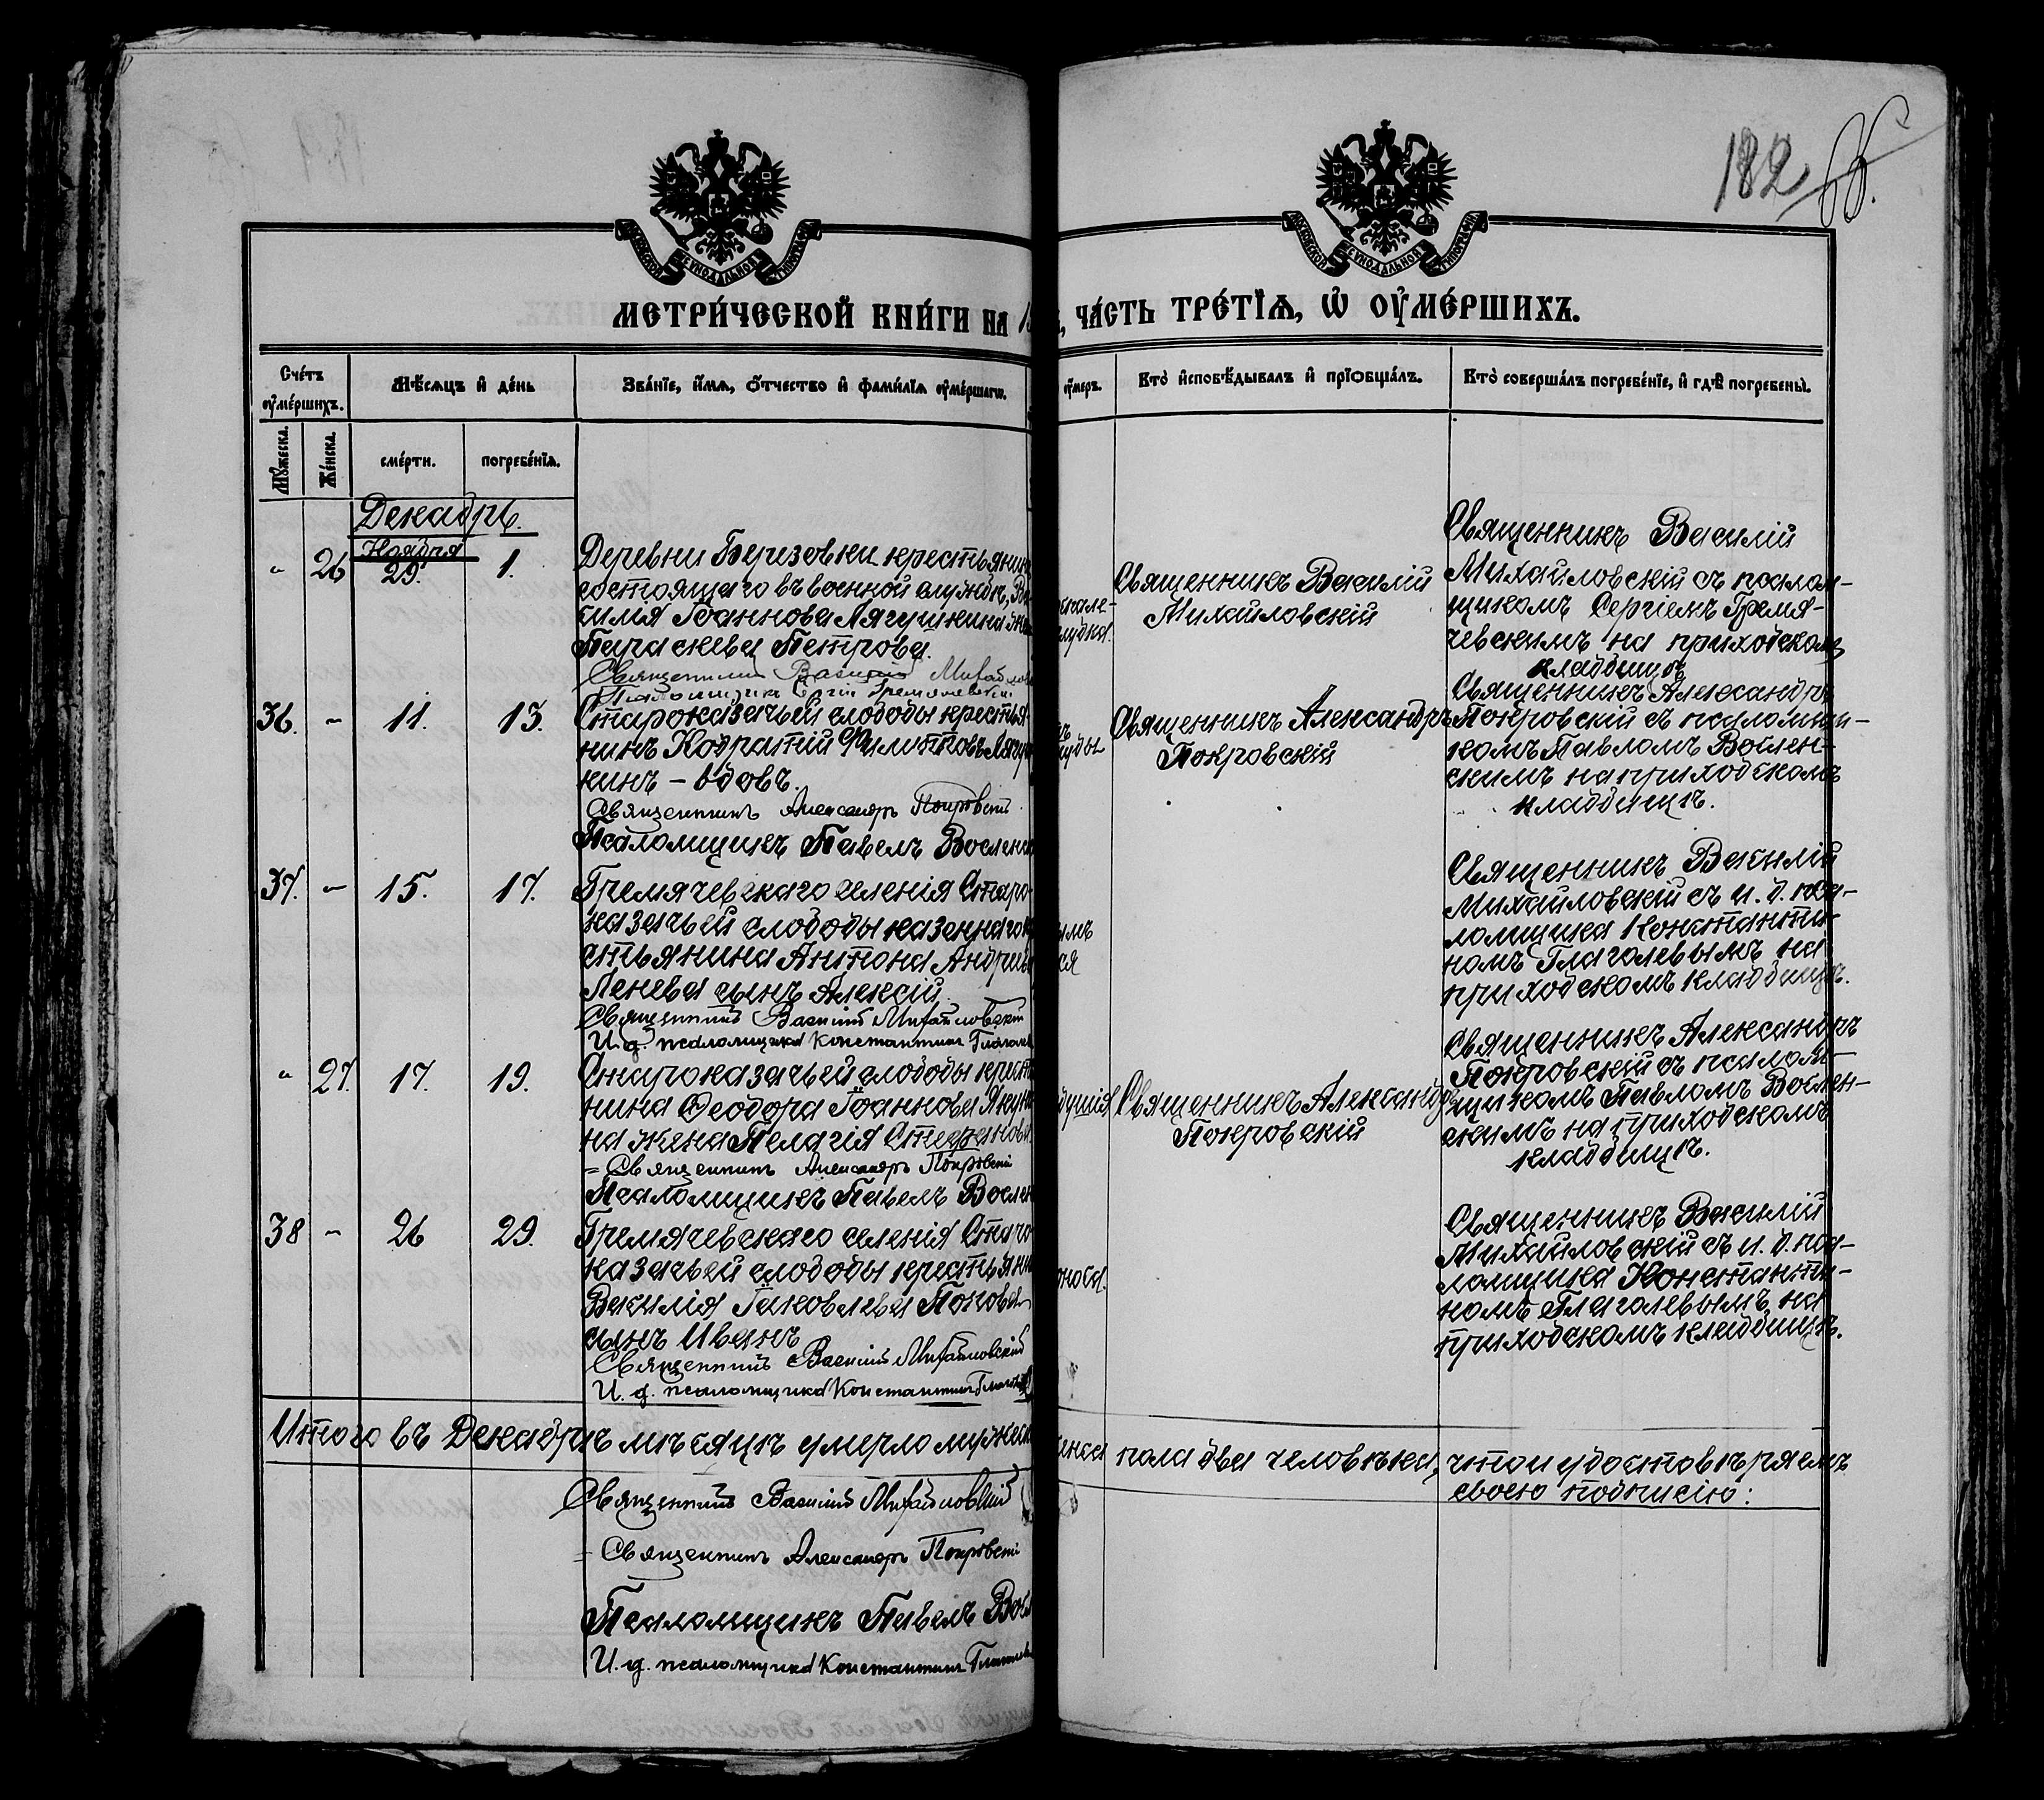 182
МОСКОВСКОЙ СѴНОДАЛЬНОЙ ТИПОГРАФІИ
МОСКОВСКОЙ СѴНОДАЛЬНОЙ ТИПОГРАФІИ
МЕТРИ́ЧЕСКОЙ КНИ́ГИ НА 1
, ЧА́СТЬ ТРЕ́ТЇѦ, Ѡ҆ ОУ҆МЕ́РШИХЪ.
Сче́тъ
оу҆ме́ршихъ.
Мѣ́сѧцъ и҆ де́нь
Зва́нїе, и҆́мѧ, ѻ҆́тчество и҆ фами́лїѧ оу҆ме́ршагѡ.
оу҆меръ.
Кто̀ и҆сповѣ́дывалъ и҆ прїѻбща́лъ.
Кто̀ соверша́лъ погребе́нїе, и҆ гдѣ̀ погребены̀.
Мꙋ́жеска.
Же́нска.
сме́рти.
погребе́нїѧ.
Декабрь.
Ноября
" 26 29. 1.
Деревни Березовки крестьянина
состоящаго въ военной службѣ, Ва
силія Іоаннова Лягушкина жена
Параскева Петрова.
Священникъ Василій Михайлов
Псаломщикъ Сергій Гремячевскій
Священникъ Василій
Михайловскій
Священникъ Василій
Михайловскій съ псалом-
щикомъ Сергіемъ Гремя-
чевскимъ на приходскомъ
кладбищѣ
36. - 11. 13.
Староказачьей слободы крестья
нинъ Кодратій Филипповъ Лягуш
кинъ - вдовъ.
Священникъ Александръ Покровскій
Псаломщикъ Павелъ Вослен
Священникъ Александръ
Покровскій
Священникъ Александръ
Покровскій съ псаломщи-
комъ Павломъ Вослен-
скимъ на приходскомъ
кладбищѣ.
37. - 15. 17.
Гремячевскаго селенія Старо
казачьей слободы казеннаго к
стьянина Антона Андрее
Пенева сынъ Алексій
Священникъ Василій Михайловскій
И. д. псаломщика Константинъ Глагол
ымъ
ая
Священникъ Василій
Михайловскій съ и. д. пса-
ломщика Константи-
номъ Глаголевымъ на
приходскомъ кладбищѣ.
" 27. 17. 19.
Староказачьей слободы крестья
нина Ѳеодора Іоаннова Якуни
на жена Пелагія Стефанова
Священникъ Александръ Покровскій
Псаломщикъ Павелъ Вослен
Священникъ Александръ
Покровскій
Священникъ Александръ
Покровскій съ псалом-
щикомъ Павломъ Вослен-
скимъ на приходскомъ
кладбищѣ.
38 - 26 29.
Гремячевскаго селенія Старо
казачьей слободы крестьяни
Василія Іаковлева Попова
сынъ Иванъ
Священникъ Василій Михайловскій
И. д. псаломщика Константинъ Глаголев
оноса.
Священникъ Василій
Михайловскій съ и. д. пса-
ломщика Константи-
номъ Глаголевымъ на
приходскомъ кладбищѣ.
Итого въ Декабрѣ мѣсяцѣ умерло мужеск
женска пола два человѣка, что и удостовѣряемъ
своею подписью:
Священникъ Василій Михайловскій
Священникъ Александръ Покровскій
Псаломщикъ Павелъ Вос
И. д. псаломщика Константинъ Глаголев